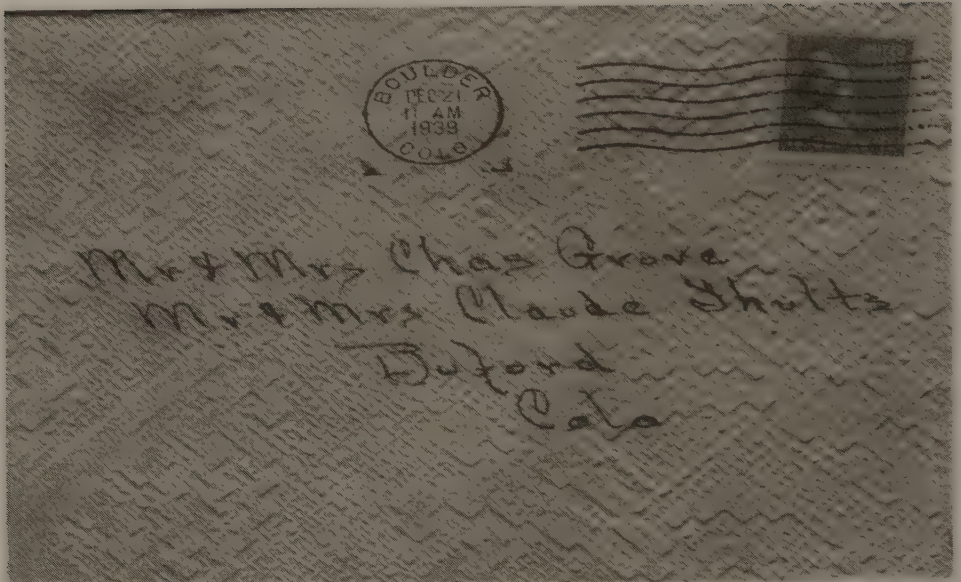 BOULDER
DEC 21
11 AM
1939
COLO.
Mr & Mrs Chas Grove
Mr & Mrs Claude Shultz
Buford
Colo